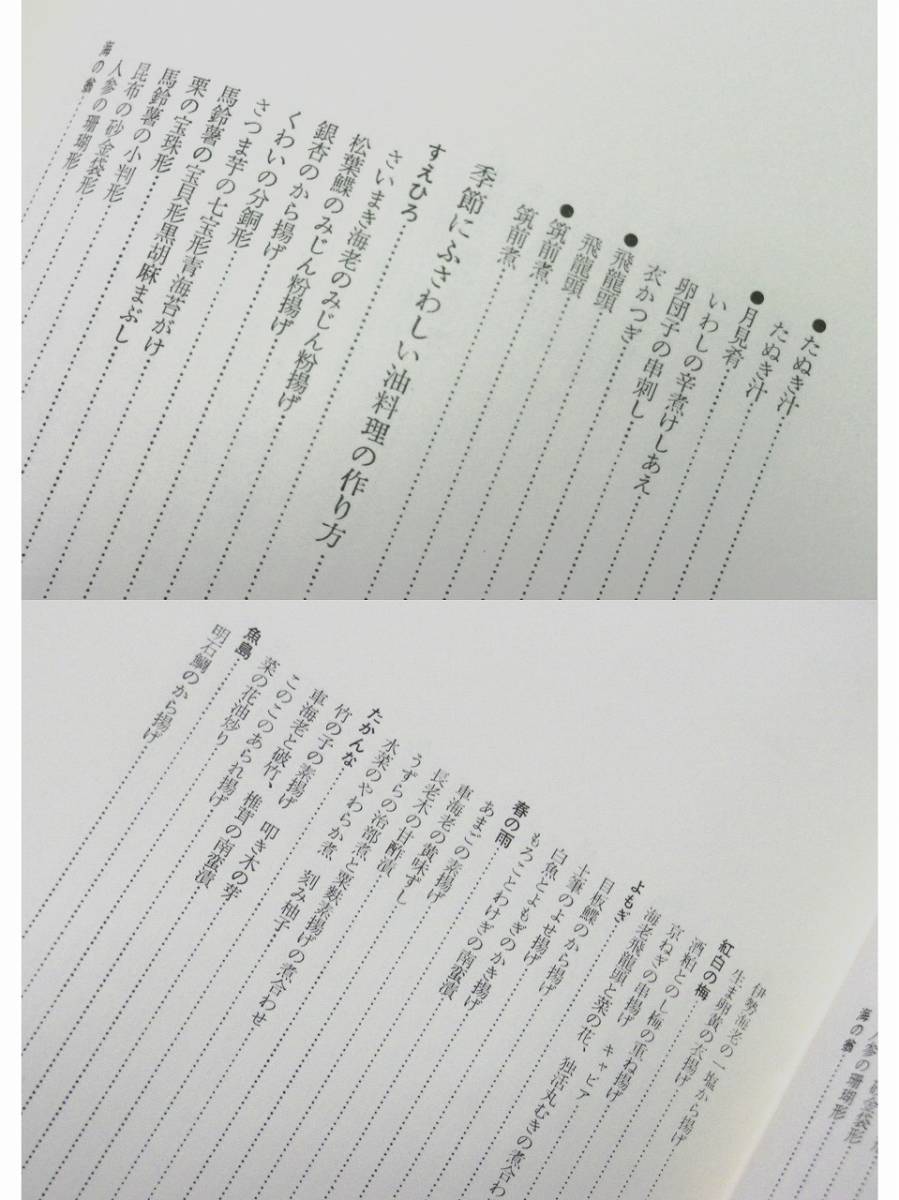 ●たぬき汁
たぬき汁
●月見肴
いわしの辛煮けしあえ
卵団子の串刺し
衣かつぎ
●飛龍頭
飛龍頭
●筑前煮
筑前煮
季節にふさわしい油料理の作り方
すえひろ
さいまき海老のみじん粉揚げ
松葉鰈のみじん粉揚げ
銀杏のから揚げ
くわいの分銅形
さつま芋の七宝形青海苔がけ
馬鈴薯の宝貝形黒胡麻まぶし
栗の宝珠形
馬鈴薯の小判形
昆布の砂金袋形
人参の珊瑚形
海の
伊勢海老の一塩から揚げ
生ま卵黄の衣揚げ
紅白の梅
酒粕とのし梅の重ね揚げ
京ねぎの串揚げ キャビア
海老飛龍頭と菜の花、独活丸むきの煮合わ
よもぎ
目板鰈のから揚げ
土筆のよせ揚げ
白魚とよもぎのかき揚げ
もろことわけぎの南蛮漬
春の雨
あまごの素揚げ
車海老の黄味ずし
長老木の甘酢漬
うずらの治部煮と粟麩素揚げの煮合わせ
水菜のやわらか煮 刻み柚子
たかんな
竹の子の素揚げ 叩き木の芽
車海老と破竹、椎茸の南蛮漬
このこのあられ揚げ
菜の花油炒り
魚島
明石鯛のから揚げ
人参の珊瑚形
海の